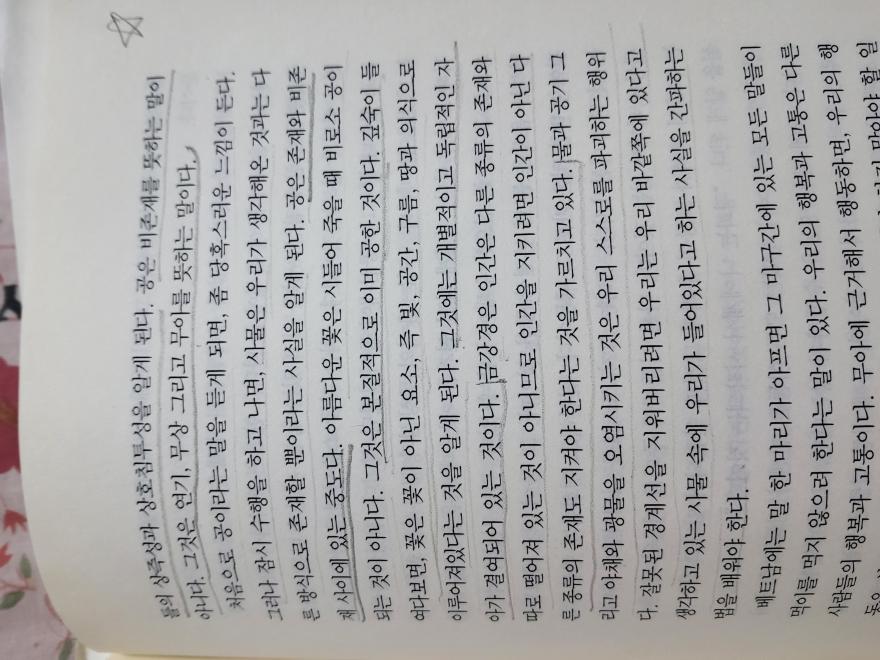 들의 상즉성과 상호침투성을 알게 된다. 공은 비존재를 뜻하는 말이
아니다. 그것은 연기, 무상 그리고 무아를 뜻하는 말이다.
처음으로 공이라는 말을 듣게 되면, 좀 당혹스러운 느낌이 든다.
그러나 잠시 수행을 하고 나면, 사물은 우리가 생각해온 것과는 다
른 방식으로 존재할 뿐이라는 사실을 알게 된다. 공은 존재와 비존
재 사이에 있는 중도다. 아름다운 꽃은 시들어 죽을 때 비로소 공이
되는 것이 아니다. 그것은 본질적으로 이미 공한 것이다. 깊숙이 들
여다보면, 꽃은 꽃이 아닌 요소, 즉 빛, 공간, 구름, 땅과 의식으로
이루어져있다는 것을 알게 된다. 그것에는 개별적이고 독립적인 자
아가 결여되어 있는 것이다. 금강경은 인간은 다른 종류의 존재와
따로 떨어져 있는 것이 아니므로 인간을 지키려면 인간이 아닌 다
른 종류의 존재도 지켜야 한다는 것을 가르치고 있다. 물과 공기 그
리고 야채와 광물을 오염시키는 것은 우리 스스로를 파괴하는 행위
다. 잘못된 경계선을 지워버리려면 우리는 우리 바깥쪽에 있다고
생각하고 있는 사물 속에 우리가 들어있다고 하는 사실을 간과하는
법을 배워야 한다.
베트남에는 말 한 마리가 아프면 그 마구간에 있는 모든 말들이
먹이를 먹지 않으려 한다는 말이 있다. 우리의 행복과 고통은 다른
사람들의 행복과 고통이다. 무아에 근거해서 행동하면, 우리의 행
말아야 할 일